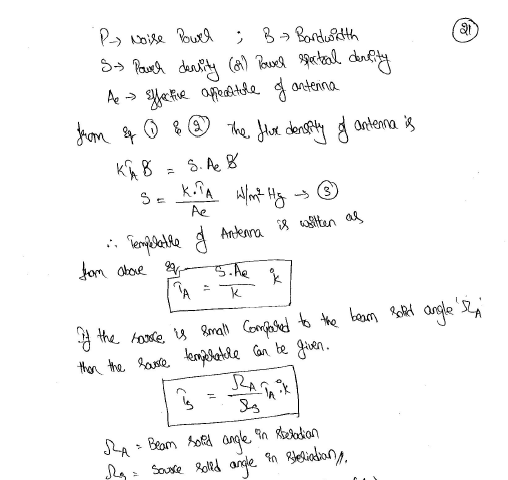 21
P → Noise Power ; B → Bandwidth
S → Power density (or) Power spectral density
Ae → Effective apperature of antenna
from eq ① & ② The flux density of antenna is
K TA B = S. Ae B
S = K.TA / Ae W/m² Hz → ③
∴ Temperature of Antenna is written as
from above eq
TA = S.Ae / K °k
If the source is small compared to the beam solid angle 'ΩA'
then the source temperature can be given.
Ts = ΩA / Ωs TA °k
ΩA = Beam solid angle in steradian
Ωs = Source solid angle in steradian //.